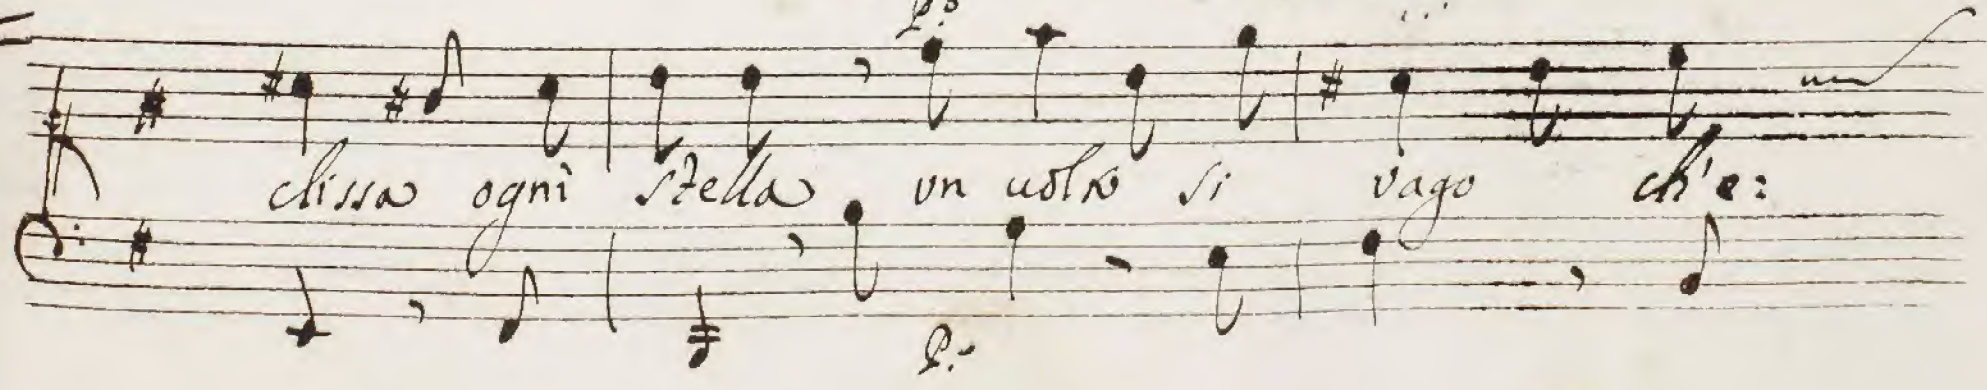 p:o
clissa ogni stella un uolto si vago ch'e:
p: